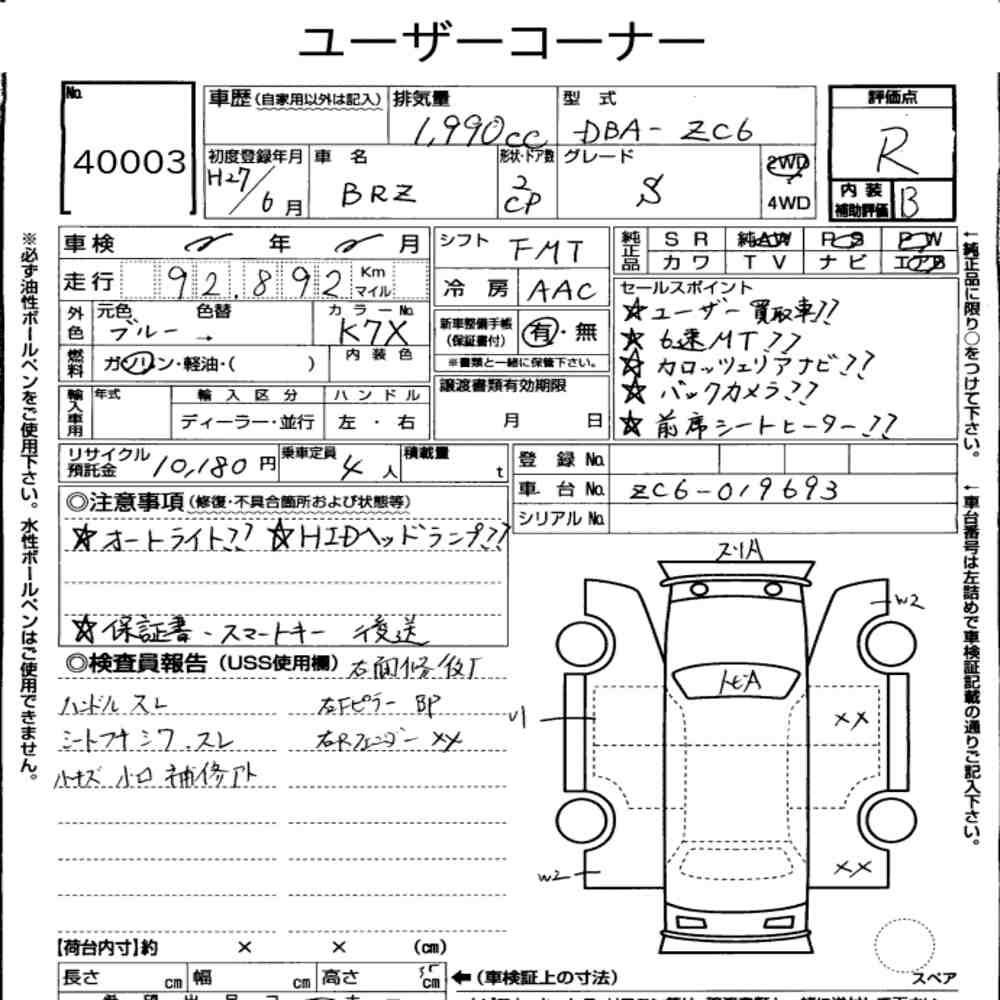 ユーザーコーナー
No. 40003
車歴(自家用以外は記入) 排気量 1,990cc 型式 DBA-ZC6
評価点 R
初度登録年月 H27/6月 車名 BRZ 形状・ドア数 2 CP グレード S 2WD 4WD
内装補助評価 B
車検 年 月
走行 92,892 Km マイル
シフト FMT
冷房 AAC
純正品 SR 純AW PS PW
カワ TV ナビ エアB
外色 元色 ブルー 色替 → カラーNo. K7X
燃料 ガソリン・軽油・( ) 内装色
新車整備手帳(保証書付) 有・無
※書類と一緒に保管下さい。
譲渡書類有効期限 月 日
セールスポイント
☆ユーザー買取車!!
☆6速MT??
☆カロッツェリアナビ??
☆バックカメラ??
☆前席シートヒーター??
輸入車用 年式 輸入区分 ディーラー・並行 ハンドル 左・右
リサイクル預託金 10,180円 乗車定員 4人 積載量 t
登録No.
車台No. ZC6-019693
シリアルNo.
◎注意事項(修復・不具合箇所および状態等)
☆オートライト?? ☆HIDヘッドランプ??
☆保証書・スマートキー 後送
◎検査員報告(USS使用欄)
ハンドル スレ
右Fピラー
シート スレ
右Rフェンダー XX
小キズ 小凹 補修アト
スリA
W2
トビA
U1
XX
W2
XX
【荷台内寸】約 × × (cm)
長さ cm 幅 cm 高さ cm ←(車検証上の寸法)
スペア
※必ず油性ボールペンをご使用下さい。水性ボールペンはご使用できません。
←純正品に限り○をつけて下さい。
←車台番号は左詰めで車検証記載の通りご記入下さい。